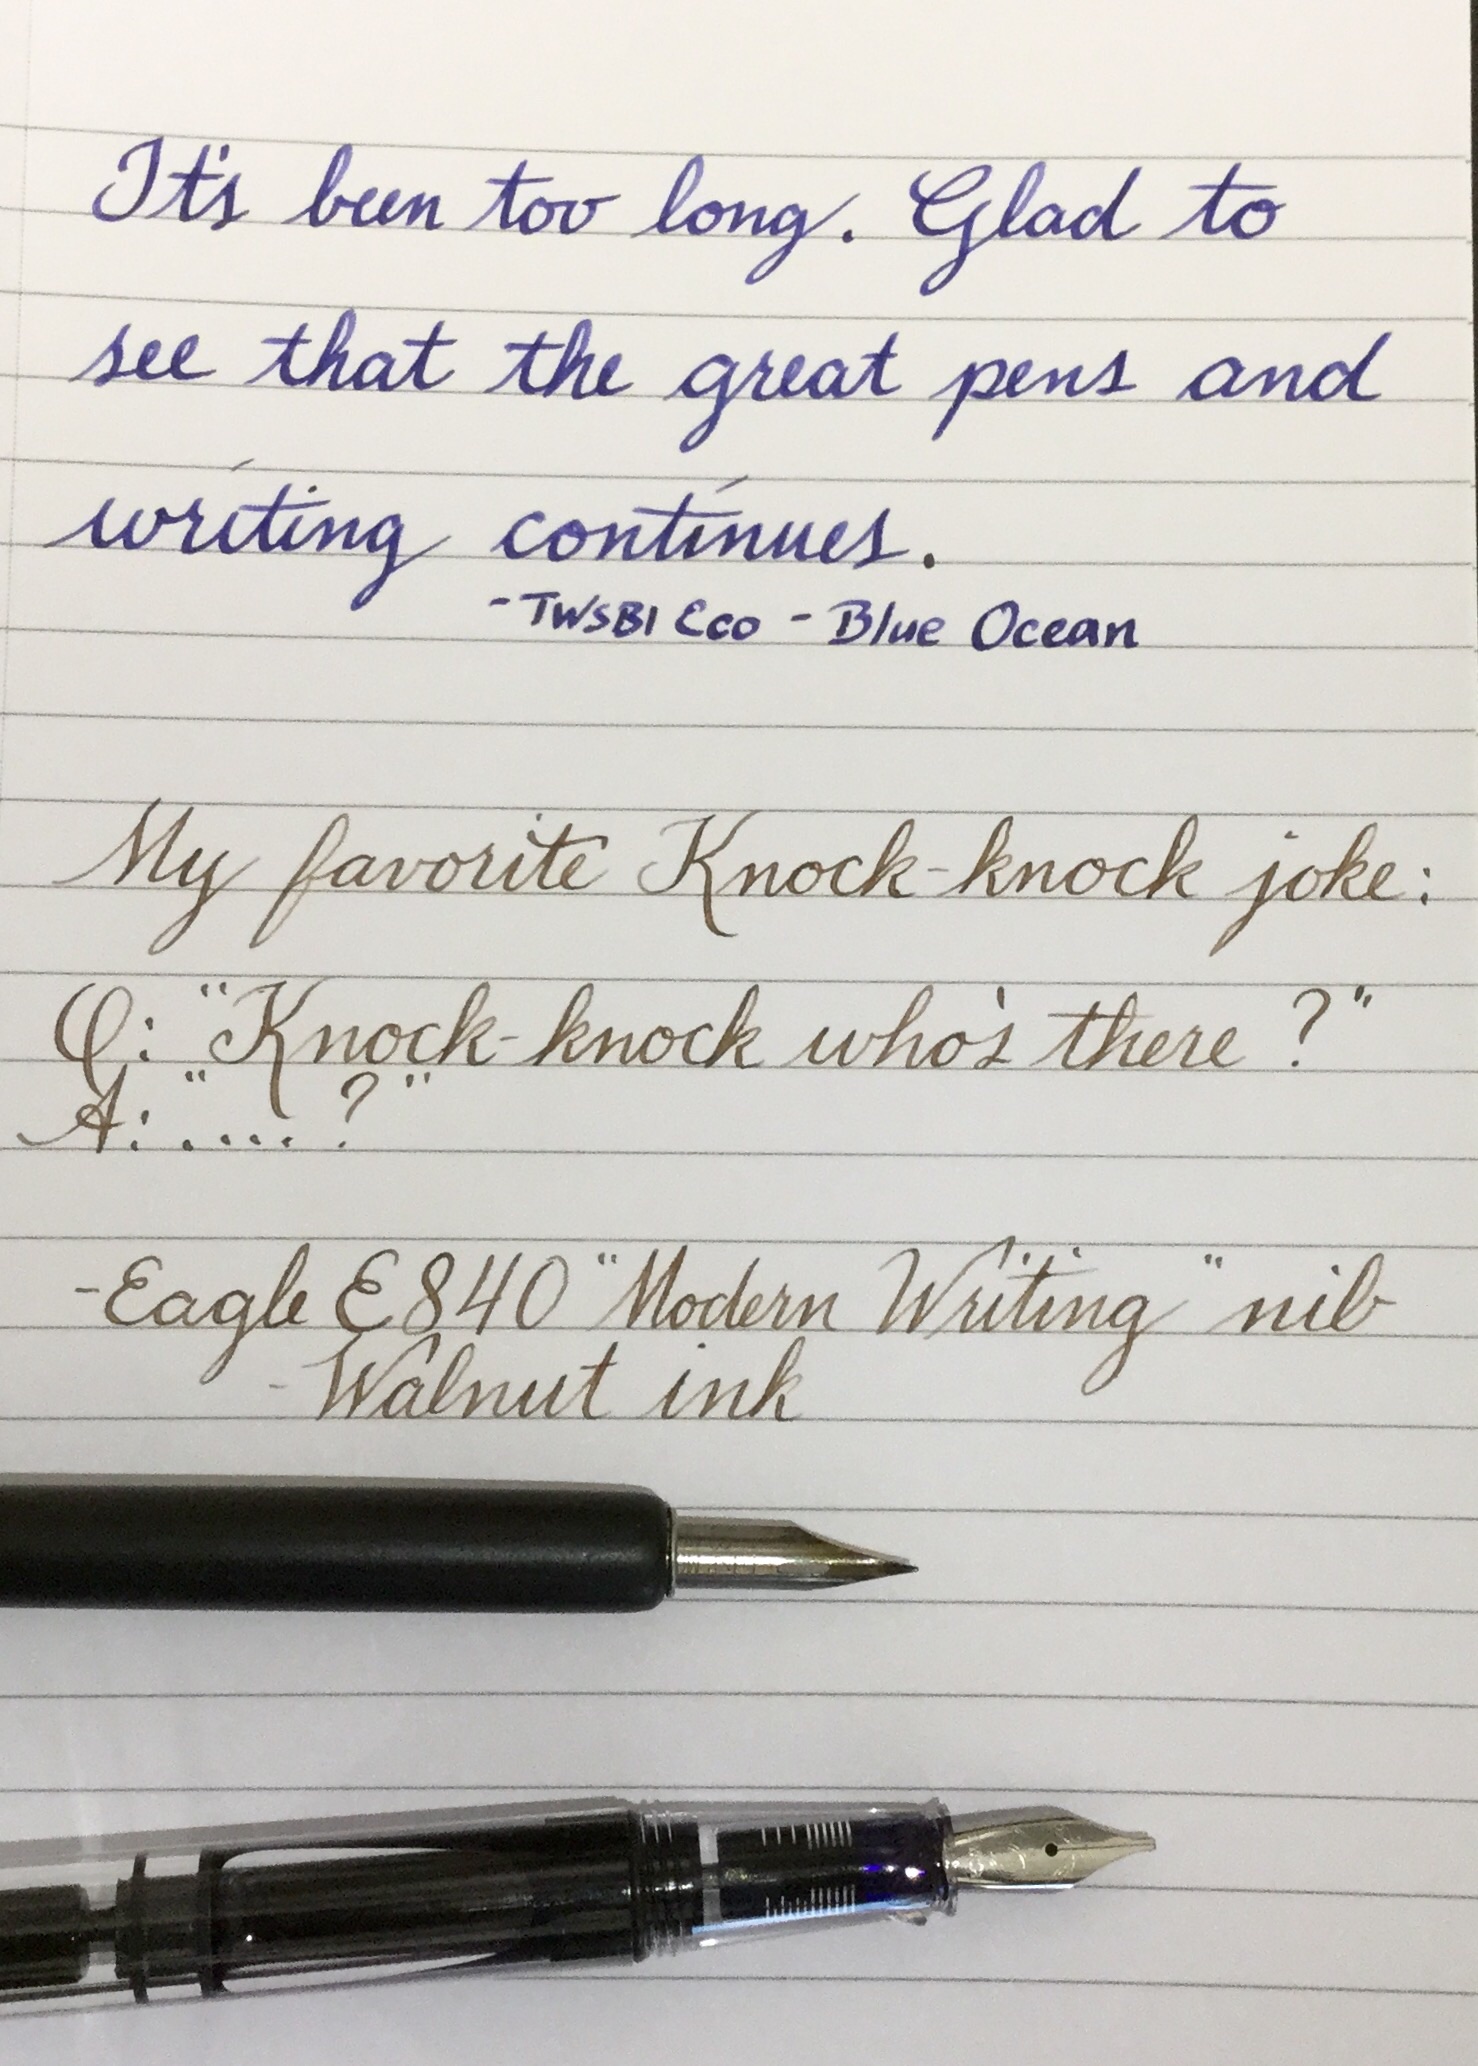 It's been too long. Glad to
see that the great pens and
writing continues.
-TWSBI Eco - Blue Ocean
My favorite Knock-knock joke:
Q: "Knock-knock who's there?"
A: ".... ?"
-Eagle E840 "Modern Writing" nib
-Walnut ink